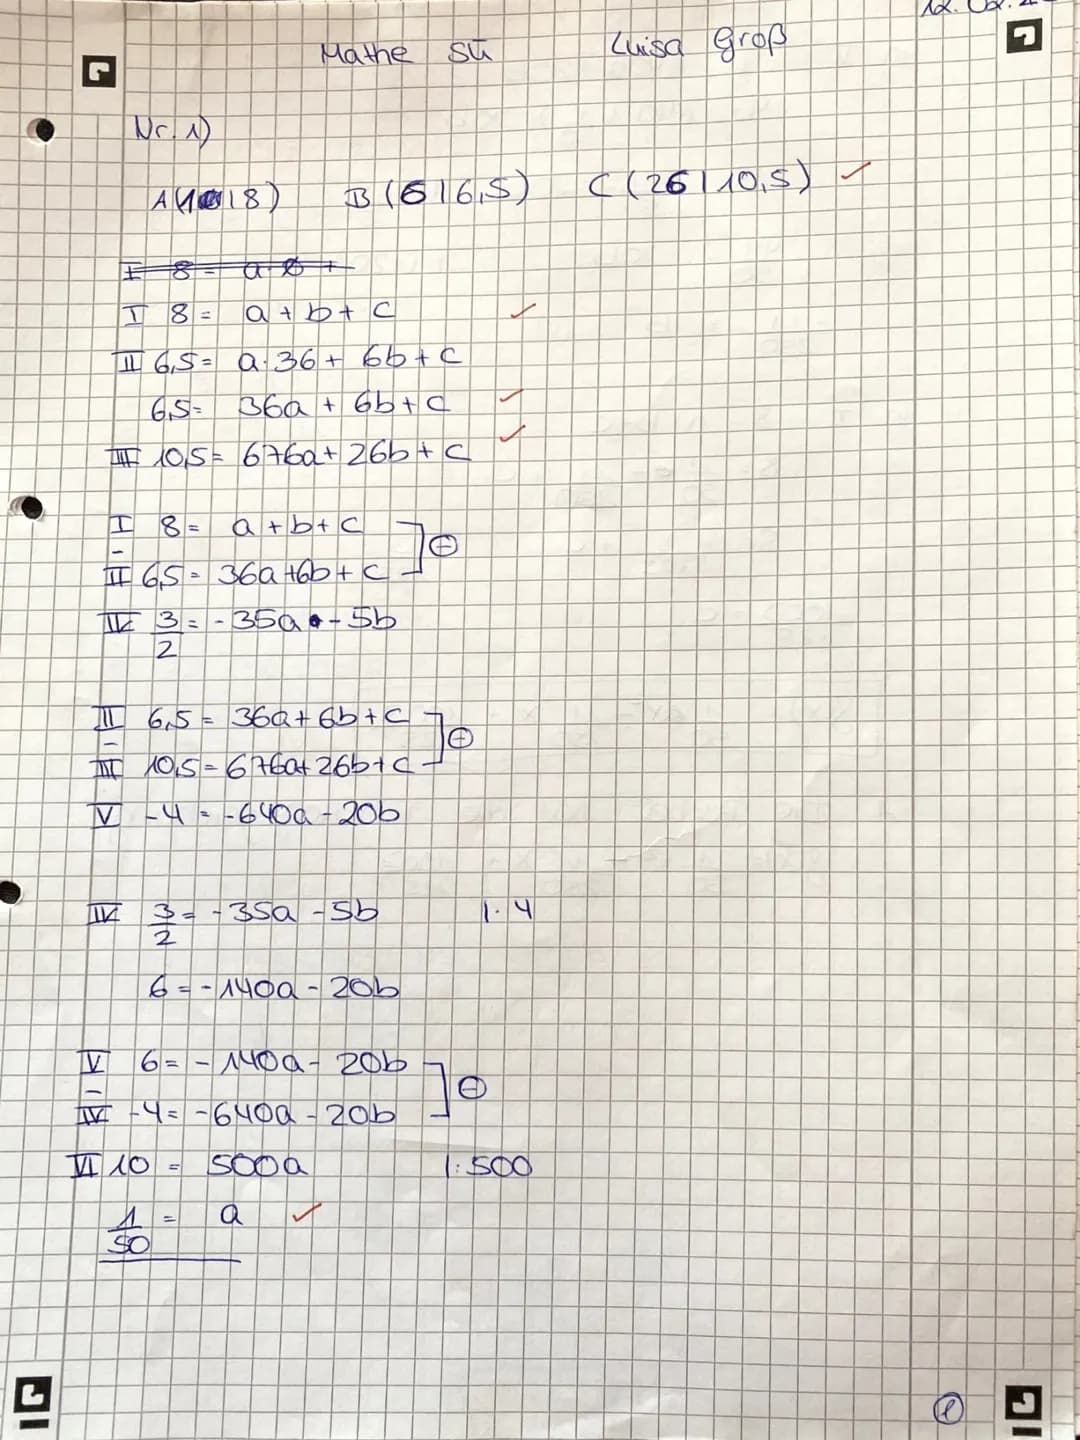 Mathe SÜ Luisa Groß
Nr. 1)
A(1|8) B(6|6,5) C(26|10,5) ✓
I 8 = a·0 +
I 8 = a + b + c ✓
II 6,5 = a·36 + 6b + c
6,5 = 36a + 6b + c ✓
III 10,5 = 676a + 26b + c ✓
I 8 = a + b + c
-
II 6,5 = 36a + 6b + c ⊖
IV 3/2 = -35a - 5b
II 6,5 = 36a + 6b + c
-
III 10,5 = 676a + 26b + c ⊖
V -4 = -640a - 20b
IV 3/2 = -35a - 5b |·4
6 = -140a - 20b
V 6 = -140a - 20b
-
IV -4 = -640a - 20b ⊖
VI 10 = 500a |:500
1/50 = a ✓